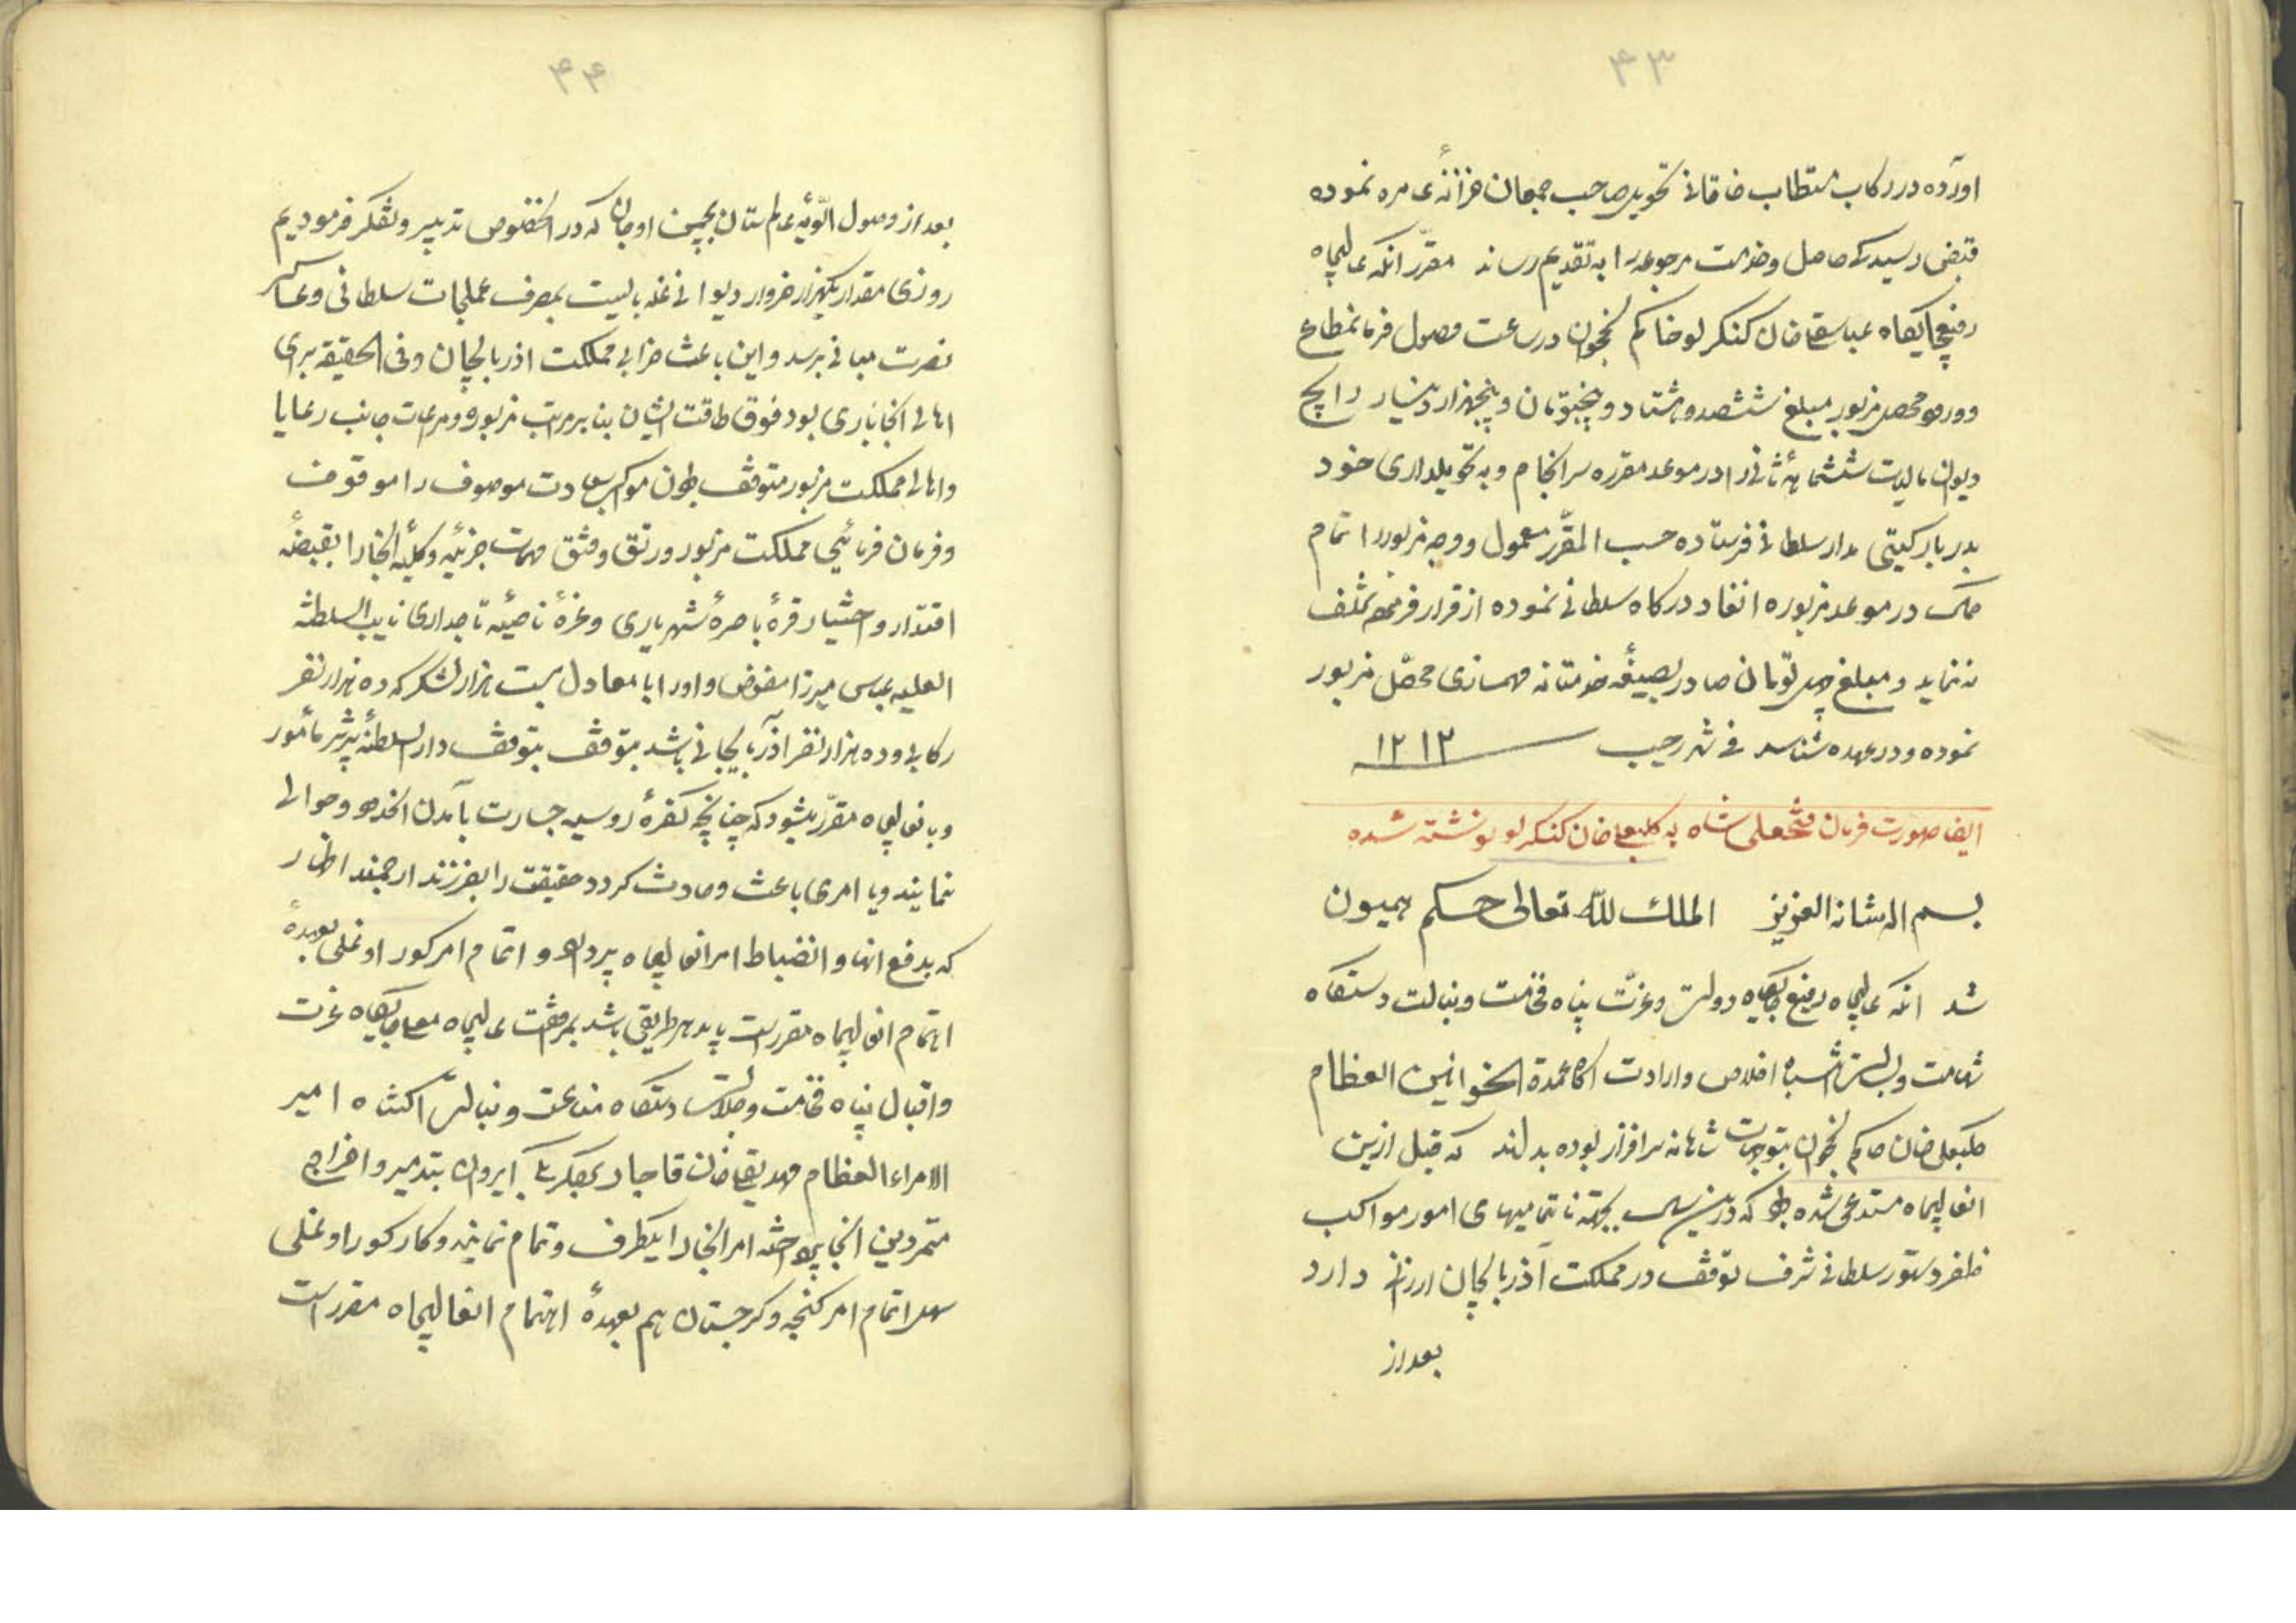 ۴۳
اورده در رکاب مستطاب خاقانی تحویل صاحب جمعان خزانهٔ عامره نموده
قبض رسید حاصل و خدمت مرجوعه را به تقدیم رساند مقرّر انکه عالیجاه
رفیعجایگاه عباسقلیخان کنکرلو حاکم نخجوان در ساعت وصول فرمانمطاع
و ورود محصل مزبور مبلغ ششصد و هشتاد و پنجتومان و پنجهزار دینار رایج
دیوان مالیات ششماههٔ ثانی را در موعد مقرره سرانجام و به تحویلداری خود
بدربار کیتی مدار سلطانی فرستاده حسب المقرّر معمول و وجه مزبور را تمام
در موعد مزبوره انفاد درکاه سلطانی نموده از قرار فرموده تخلف
ننماید و مبلغ تومان صادر بصیغه خدمتانه مهمسازی محصّل مزبور
نموده و در عهده شناسد فی شهر رجب ۱۲۱۳
ایضا صورت فرمان فتحعلی شاه به کلبعلیخان کنکرلو نوشته شده
بسم اله شانه العزیز الملک للّه تعالی حکم همیون
شد انکه عالیجاه رفیع جایگاه دولت و عزّت پناه فخامت و نبالت دستکاه
شهامت و بسالت انتباه اخلاص و ارادت اکاه عمدة الخوانین العظام
کلبعلی خان حاکم نخجوان بتوجهات شاهانه سرافراز بوده بداند که قبل ازین
انعالیجاه مستدعی شده بود که درین بجهته ناتمامیهای امور مواکب
ظفر دستور سلطانی شرف توقف در مملکت آذربایجان ارزانی دارد
بعد از
۴۴
بعد از وصول الویهٔ عالم ستان بچمن اوجان که در اینخصوص تدبیر و تفکر فرمودیم
روزی مقدار یکهزار خروار دیوانی غله بایست بمصرف عملجات سلطانی و عساکر
نصرت مبانی برسد و این باعث خرابی مملکت اذربایجان و فی الحقیقه برای
اهالی انجا باری بود فوق طاقت ایشان بنابر مراتب مزبوره و مراعات جانب رعایا
و اهالی مملکت مزبور متوقف بودن موکب سعادت موصوف را موقوف
و فرمان فرمائیی مملکت مزبور و رتق و فتق مهمات جزئیه و کلیهٔ انجا را بقبضهٔ
اقتدار و اختیار قرهٔ باصرهٔ شهریاری و غرهٔ ناصیهٔ تاجداری نایب السلطنه
العلیه عباس میرزا مفوض و او را با معادل بیست هزار لشکر که ده هزار نفر
رکابی و ده هزار نفر اذربایجانی باشد بتوقف دار السلطنهٔ تبریز مأمور
و بانعالیجاه مقرّر میشود که چنانچه کفرهٔ روسیه جسارت بآمدن انحدود و حوالی
نمایند و یا امری باعث و حادث کردد حقیقت را بفرزند ارجمند اظهار
که بدفع انها و انضباط امر انعالیجاه پردازد و اتمام امر کور اوغلی بعهدهٔ
اهتمام انعالیجاه مقرر است باید بهر طریقی باشد بمرافقت عالیجاه معلی جایگاه عزت
و اقبال پناه فخامت و جلالت دستکاه مناعت و نبالت اکتناه امیر
الامراء العظام مهدیقلیخان قاجار بیکلربیکی ایروان بتدمیر و اخراج
متمردین انجا پرداخته امر انجا را یکطرف و تمام نمایند و کار کور اوغلی
اتمام امر کنجه و کرجستان هم بعهدهٔ اهتمام انعالیجاه مقرر است